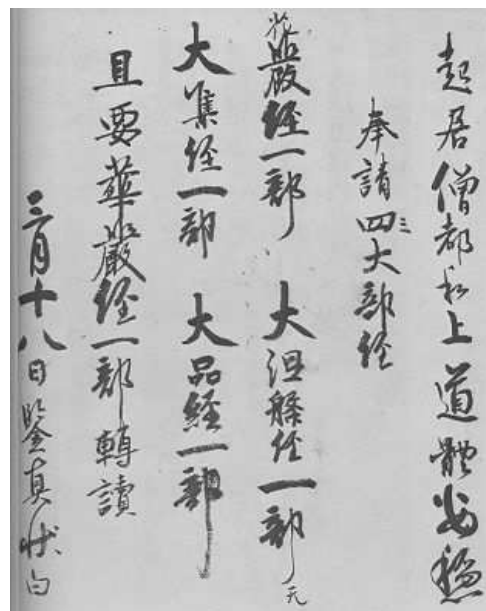 起居僧都和上道體安穩
奉請四三大部經
花嚴經一部 大涅槃經一部 无
大集經一部 大品經一部
且要華嚴經一部轉讀
三月十八日鑒真狀白